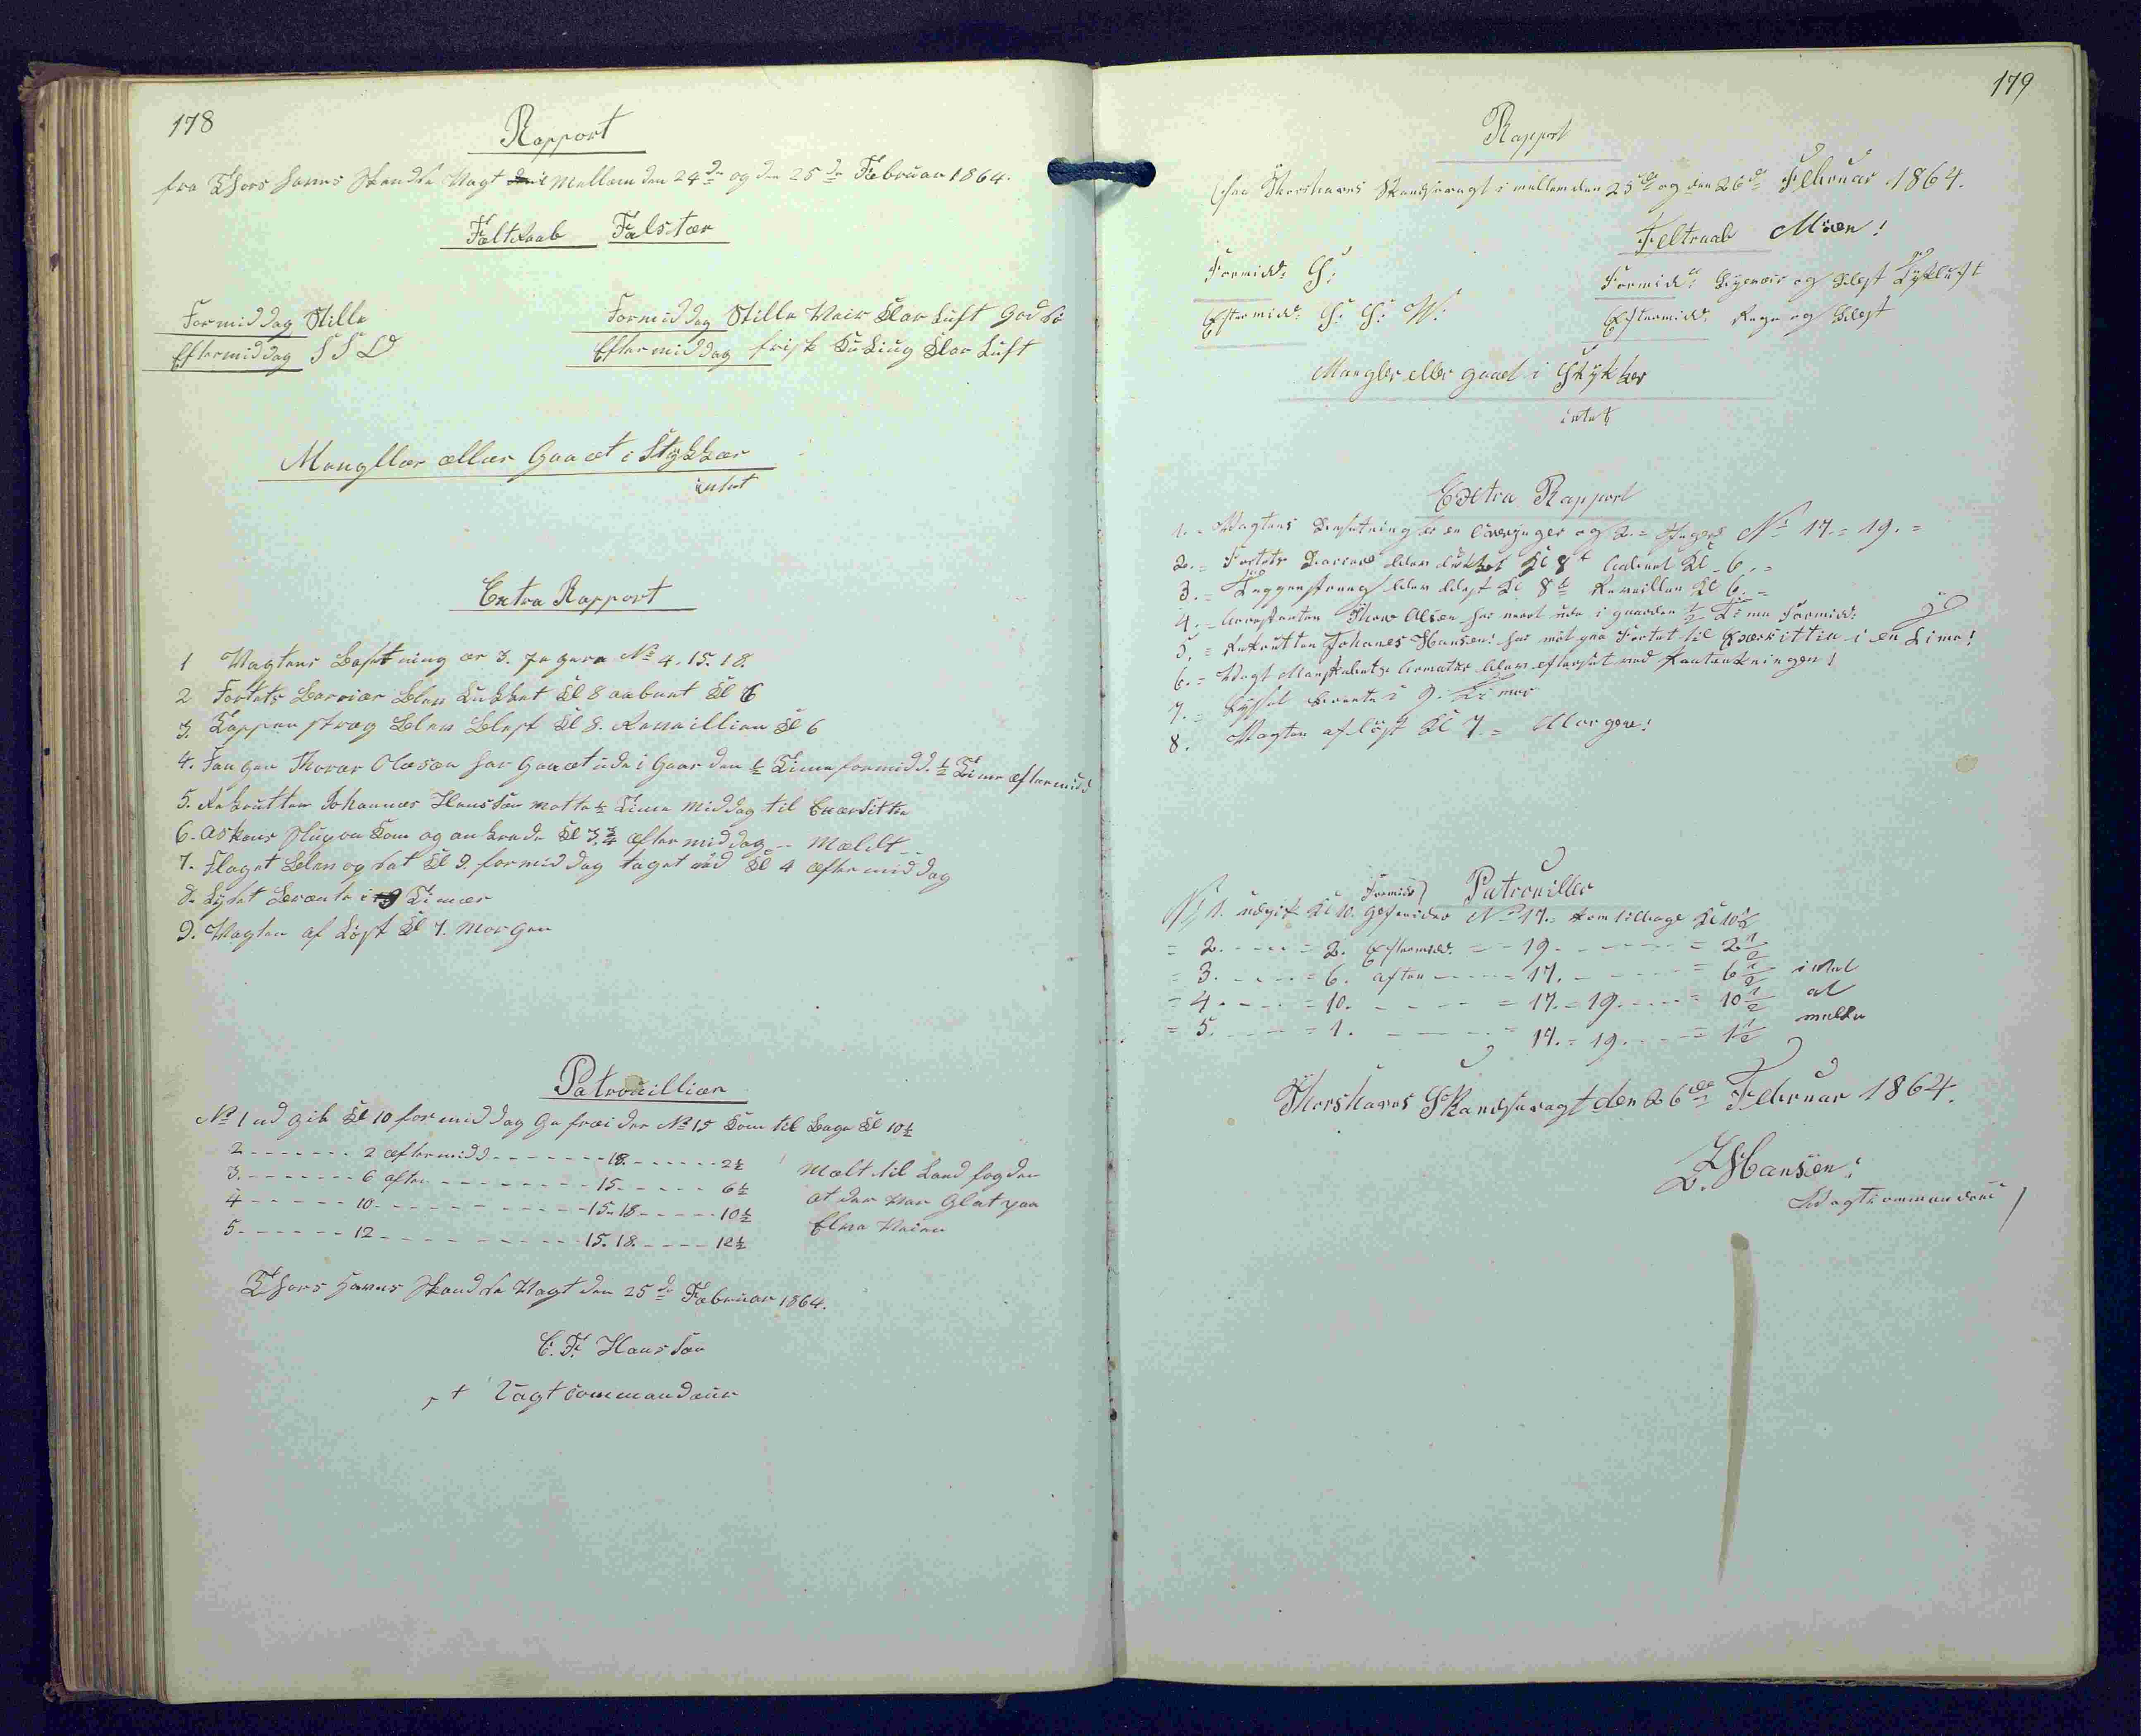 178
Rapport
fra Thors havns Skandse Vagt i Mellem den 24de og den 25de Februar 1864.
Feltraab Falster
Formiddag Stille
Eftermiddag S S O
Formiddag Stille Veir Klar Luft God Sö
Eftermiddag frisk Kuling Klar Luft
Mangller eller Gaaet i Stykker
intet
Extra Rapport
1 Vagtens Besetning er 3. Jegere No 4. 15. 18.
2 Fortets Barrier blev Lukket Kl 8 aabnet Kl 6
3. Tappenstræg blev blest Kl 8. Reveillien Kl 6
4. Fangen Thorer Olesen har Gaaet ude i Gaarden ½ Time formidd. ½ Time eftermidd
5. Rekrutten Johannes Hansen motte ½ Time Middag til Exersitte
6. Askens Slup Kom og ankrede Kl 3¾ eftermiddag - Meldt
7. Flaget blev op sat Kl 9. formiddag taget ned Kl 4 eftermiddag
8. Lyset brænte i 9 Timer
9. Vagten af Löst Kl 7. Morgen
Patrouillier
No 1 ud gik Kl 10 formiddag Gefreider No 15 Kom til bage Kl 10½
2 - - - - 2 eftermidd - - - - 18. - - - - 2½
3. - - - - 6 aften - - - - 15. - - - - 6½
4 - - - - 10. - - - - 15. 18 - - - - 10½
5. - - - - 12 - - - - 15. 18. - - - - 12½
Melt til Land fogden
at der var Glat paa
Elve Veien
Thors Havns Skandse Vagt den 25de Februar 1864.
C. F. Hansen
Vagt Commandeur
179
Rapport
fra Thorshavns Skandsevagt i mellem den 25de og den 26de Februar 1864.
Feltraab Möen!
Formidd: S:
Eftermidd: S: S: W:
Formidd: og Blest Tykluft
Eftermidd. Regn og Blest
Mangler eller gaaet i Stykker
intet
Extra Rapport
1. = Vagtens Besetning er en og 2. = Jegere No 17. = 19. =
2. = Fortets Barriere blev lukket Kl 8 aabnet Kl. 6. =
3. = Tappenstræg blev blest Kl 8 Reveillen Kl 6. =
4. = Arrestanten Thorer Olsen har veret ude i gaarden ½ Time Formidd:
5. = Rekrutten Johanes Hansen: har möt paa Fortet til Exersittie i en Time!
6. = Vagt Mandskabets Armatur blev efterset ved
7. = Lyset brente i 9. Timer
8. Vagten aflöst Kl 7. = Morgen!
Patrouiller
No 1. udgik Kl 10. Formidd Gefreider No 17. = kom tilbage Kl 10½
= 2. - - - = 2. Eftermidd. = - 19. - - - = 2½
= 3. - - - = 6. Aften - - - = 17. - - - = 6½
= 4. - - - = 10. - - - = 17. = 19. - - - = 10½
= 5. - - - = 1. - - - = 17. = 19. - - - = 1½
intet
at
melde
Thorshavns Skandsevagt den 26de Februar 1864.
Hansen:
Vagtkommandeur